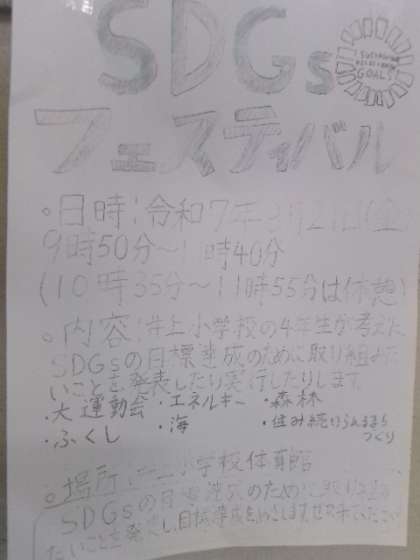 SDGs
GOALS
フェスティバル
。日時:令和7年 月2 日(金)
9時50分~1 時40分
(10時35分~11時55分は休憩)
。内容:井上小学校の4年生が考えた
SDGsの目標達成のために取り組みた
いことを発表したり実行したりします。
・大運動会・エネルギー・森林
・ふくし ・海 ・住み続けられるまち
づくり
。場所: 上小学校体育館
SDGsの目標達成のために取り組み
たいことを発表し、目標達成をめざします。ぜひ来てください